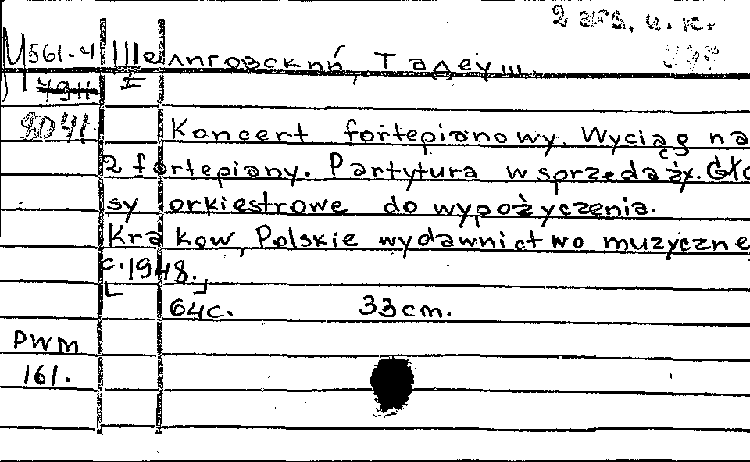 2 экз. ч. к.
М561-4 Шелиговский, Тадеуш.
I
8041.
Koncert fortepianowy. Wyciąg na
2 fortepiany. Partytura w sprzedaży. Gło
sy orkiestrowe do wypożyczenia.
Krakow, Polskie wydawnictwo muzyczne,
c.1948.
64c. 33cm.
PWM
161.